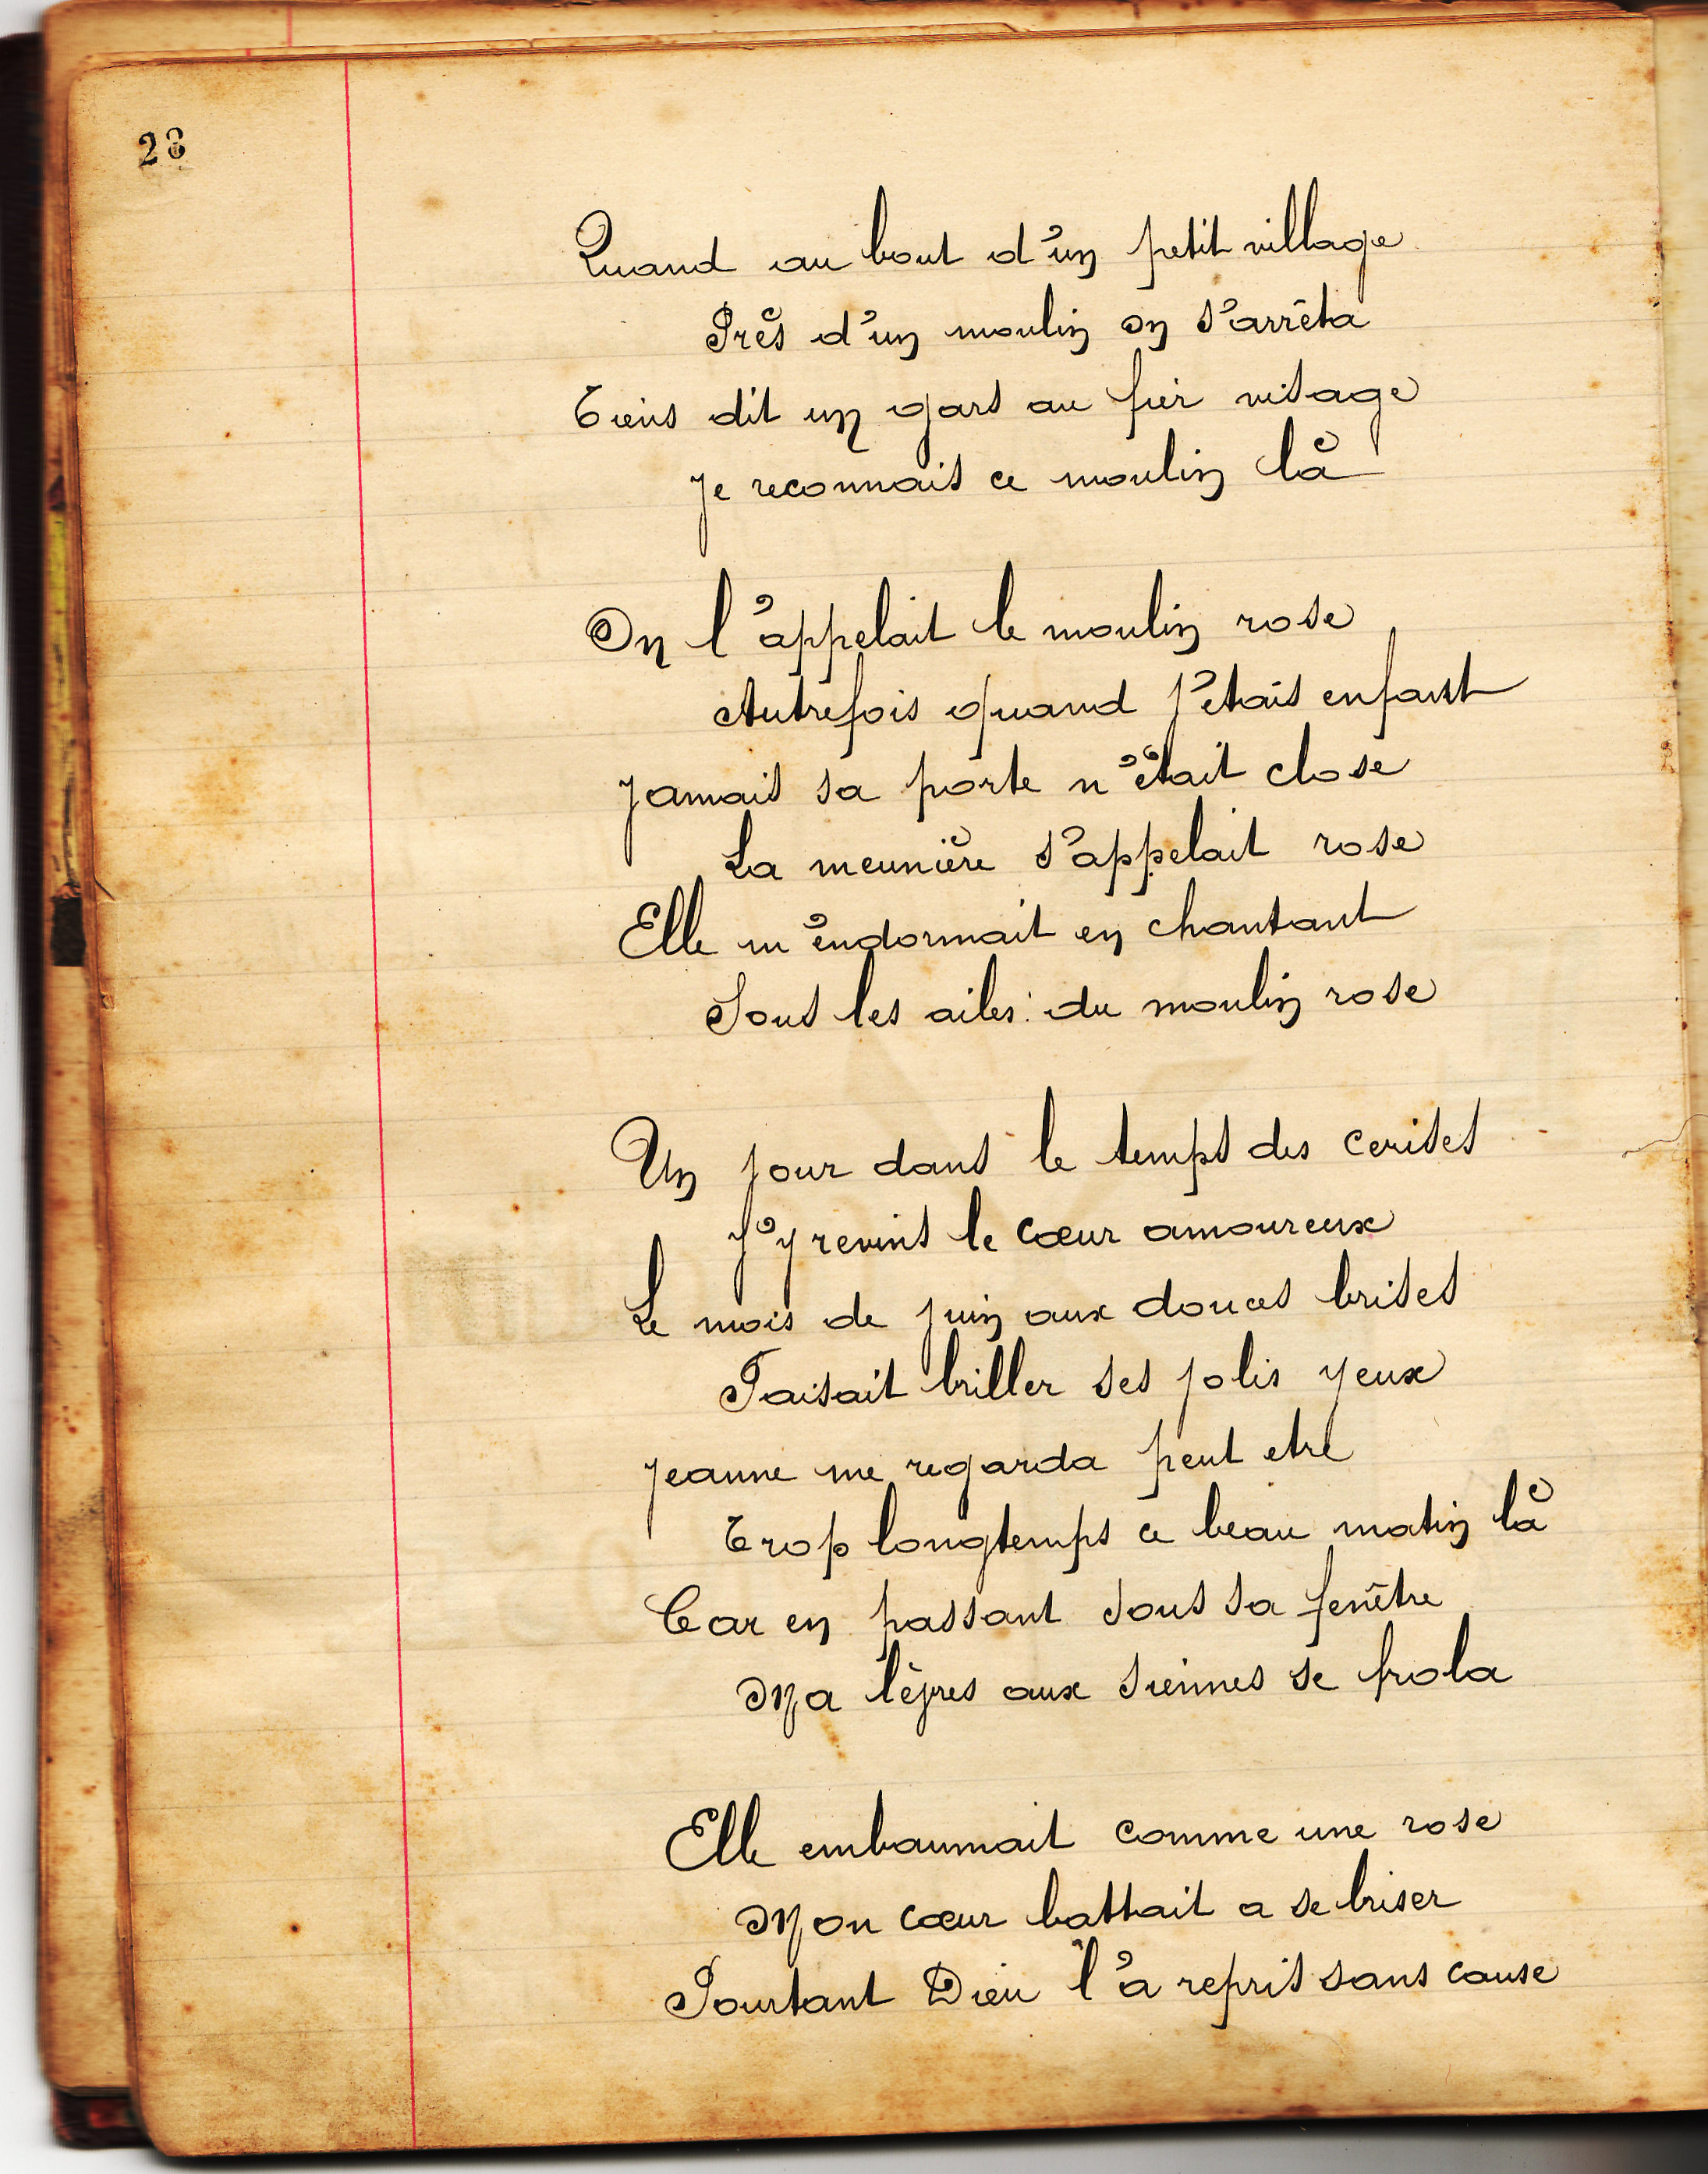 28
Quand au bout d'un petit village
Près d'un moulin on s'arrêta
Tiens dit un gars au fier visage
Je reconnais ce moulin là
On l'appelait le moulin rose
Autrefois quand j'étais enfant
Jamais sa porte n'était close
La meunière s'appelait rose
Elle m'endormait en chantant
Sous les ailes du moulin rose
Un jour dans le temps des cerises
J'y revins le cœur amoureux
Le mois de juin aux douces brises
Faisait briller ses jolis yeux
Jeanne me regarda peut etre
Trop longtemps ce beau matin là
Car en passant sous sa fenêtre
Ma lèpres aux siennes se frola
Elle embaumait comme une rose
Mon cœur battait a se briser
Pourtant Dieu l'a repris sans cause